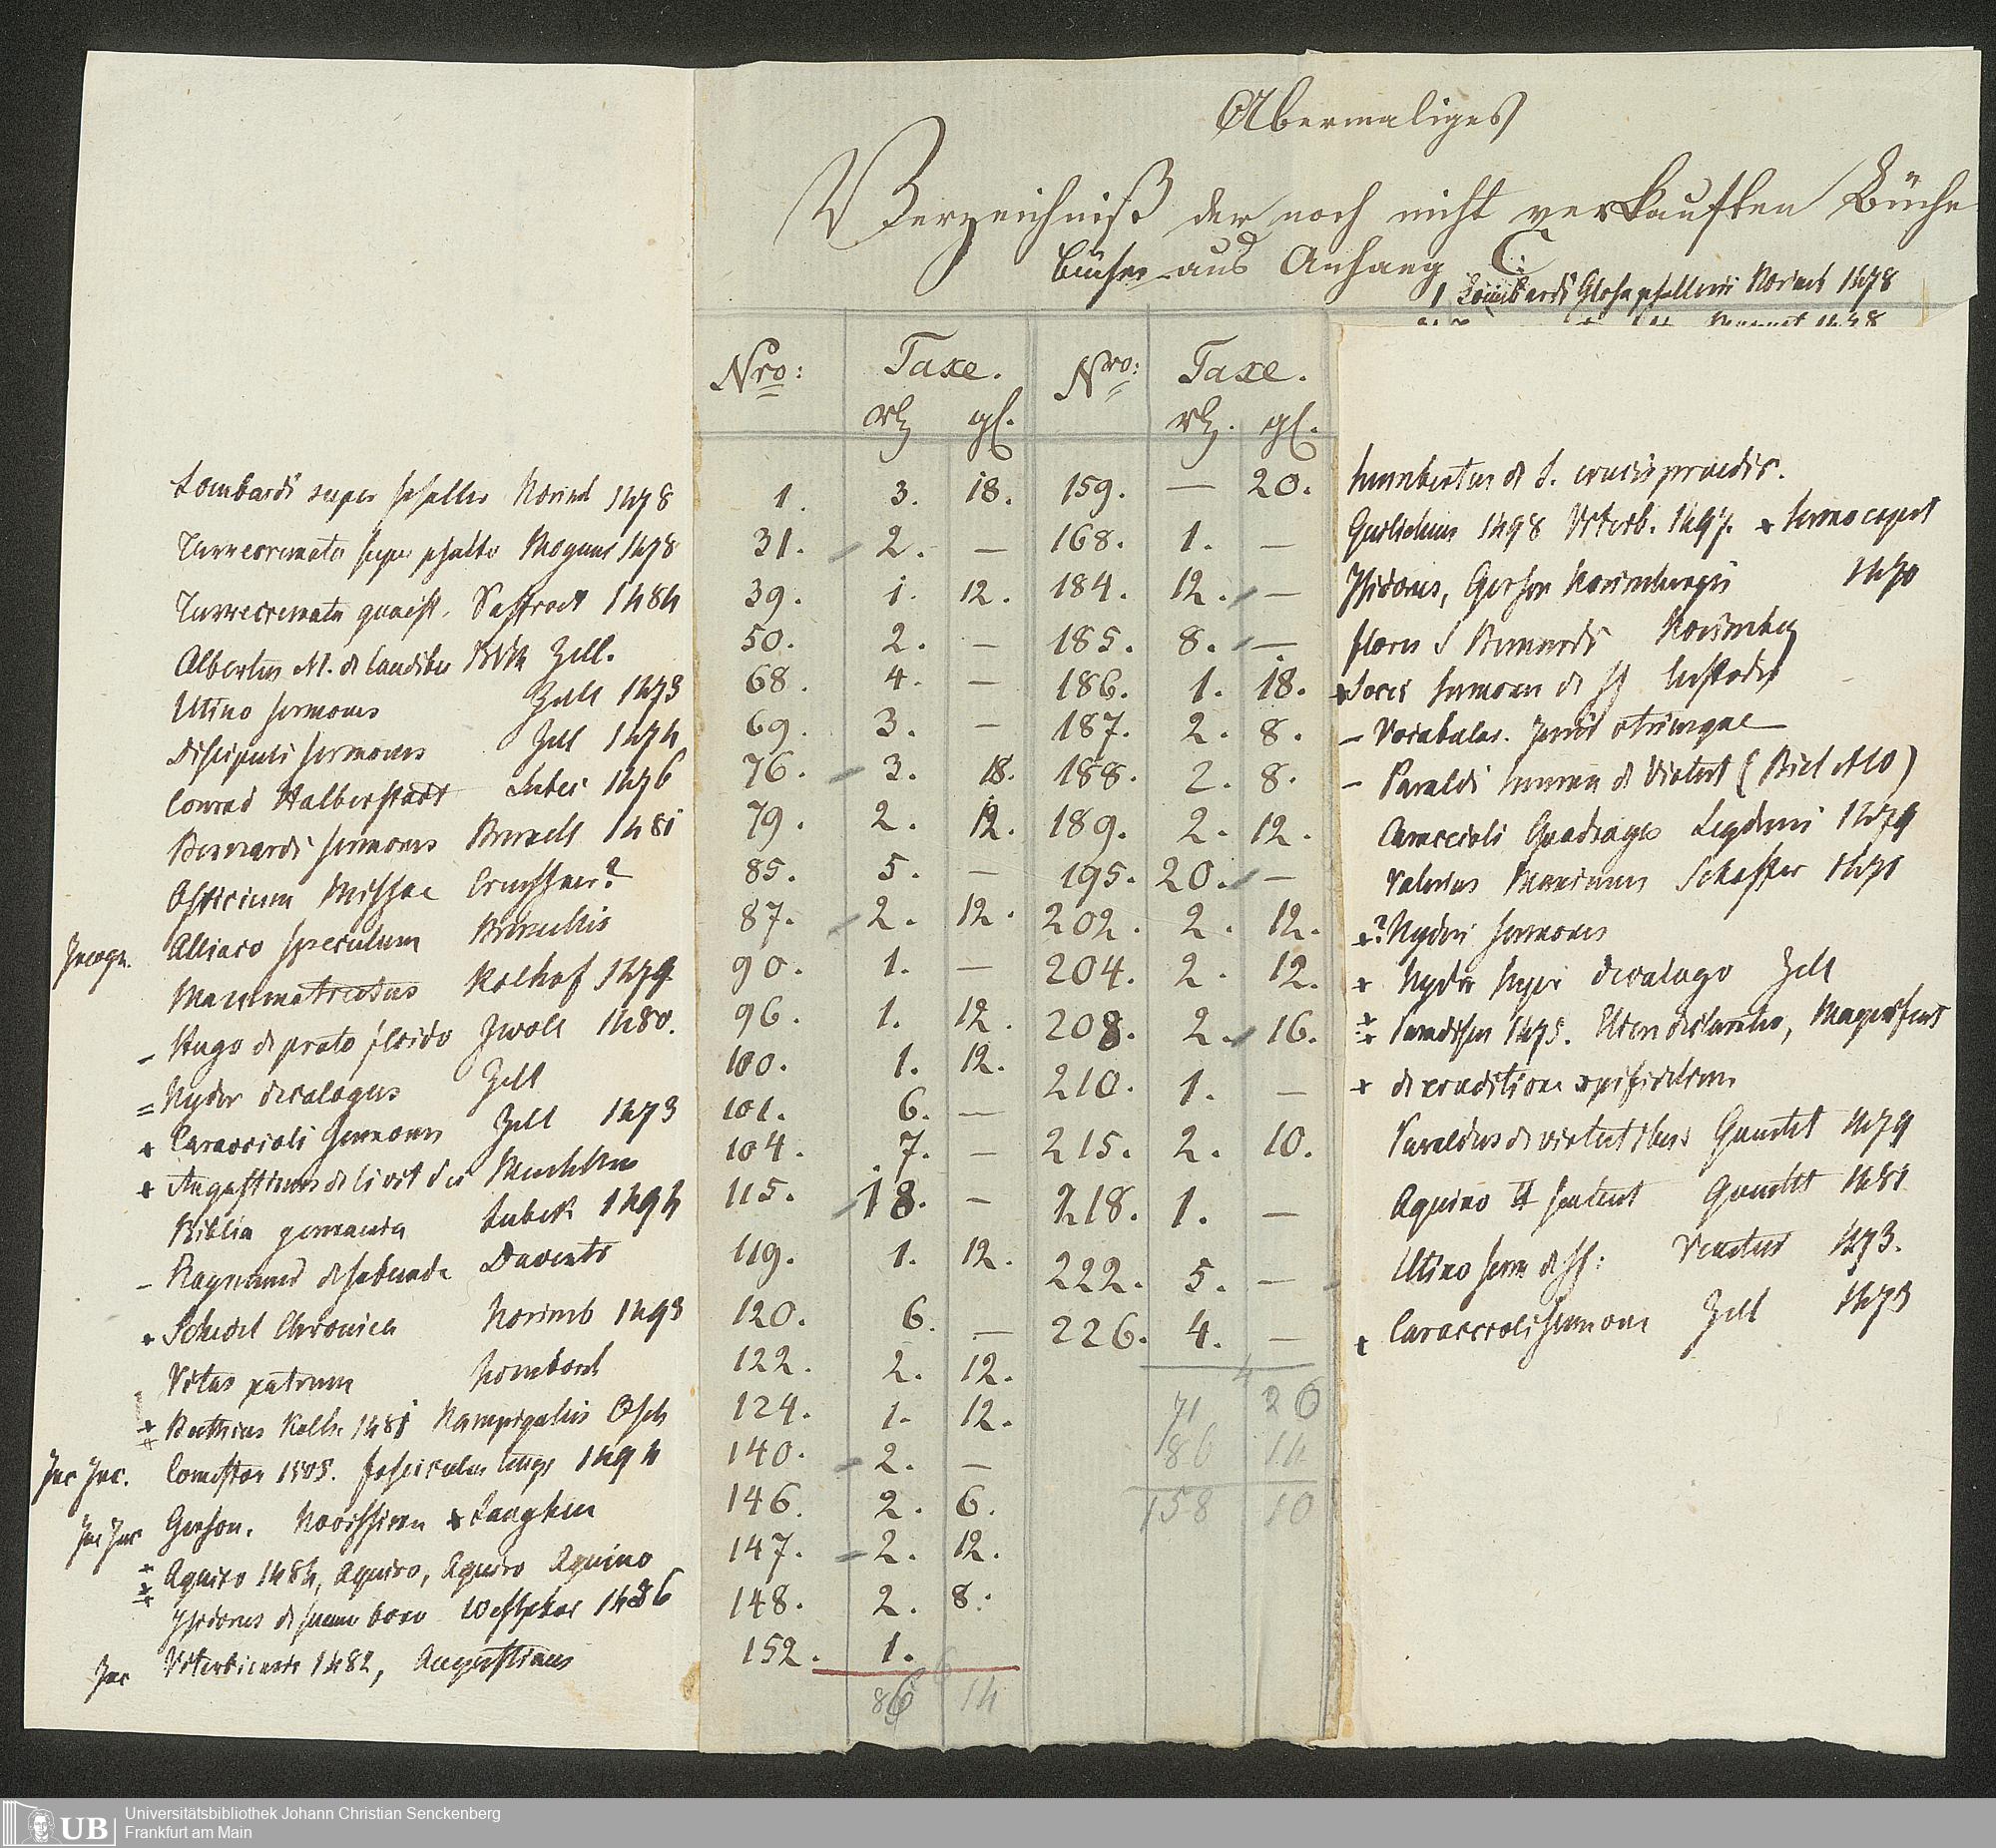 Abermaliges
Verzeichniß der noch nicht verkauften Büche
Bücher aus Anhang C.
1 Lombardi Glosa psalterii Norimb 1478
Nro: Taxe. Nro: Taxe.
rth gl. rth. gl.
Lombardi super psalter Norimb 1478 1. 3. 18. 159. — 20. humbertus de S. crucis praedic.
Turrecremata super psalter Mogunt 1478 31. 2. — 168. 1. — 1498 Viterb. 1497. x sermo
Turrecremata quaest. Saffrart 1484 39. 1. 12. 184. 12. — Isidorus, Gerson Norimbergii 1470
Albertus M. de laudibus BVM Zell. 50. 2. — 185. 8. — flores S Bernardi Norimberg
Utino sermones Zell 1473 68. 4. — 186. 1. 18. x Socci sermones de SS
Discipuli sermones Zell 1474 69. 3. — 187. 2. 8. — Vocabular. Juris utriusque
Conrad Halberstadt 1476 76. 3. 18. 188. 2. 8. — Paraldi summa de Virtut (Biel 1410)
Bernardi sermones Bruxels 1481 79. 2. 12. 189. 2. 12. Caraccioli Quadrages Lugduni 1479
Officium Missae Creussner? 85. 5. — 195. 20. — Valerius Maximus Schoffer 1471
Incogn. Alliaco speculum Bruxellis 87. 2. 12. 202. 2. 12. x? Nyderi sermones
Mammotrectus Kolhof 1479 90. 1. — 204. 2. 12. x Nyder super decalogo Zell
— Hugo de prato florido Zwoll 1480. 96. 1. 12. 208. 2. 16. Paradisus 1475.
= Nyder decalogus Zell 100. 1. 12. 210. 1. — x de eruditione
x Caraccioli sermones Zell 1473 101. 6. — 215. 2. 10. Paraldus de virtutibus Quentel 1479
x Augustinus de Civit dei Mentelin 104. 7. — 218. 1. — Aquino II sentent Quentel 1481
Biblia germanica Lubek 1494 115. 18. — 222. 5. — Utino serm de SS: Venetus 1473.
— Raymundi de sabunde Davent 119. 1. 12. 226. 4. — x Caraccioli sermones Zell 1473
x Schedel Chronica Norimb 1493 120. 6. —
Vitas patrum hombord 122. 2. 12. 71 26
x Boethius Kolh. 1481 Rampigolis 124. 1. 12. 86 14
Inc Inc. Comestor 1505. fasciculus temps 1494 140. 2. — 158 10
Inc Inc Gerson. x 146. 2. 6.
Aquino 1484, Aquino, Aquino Aquino 147. 2. 12.
Isidorus de summo bono Westphal 1486 148. 2. 8.
Inc Viterbiensis 1482, Augustinus 152. 1.
86 14
UB Universitätsbibliothek Johann Christian Senckenberg
Frankfurt am Main